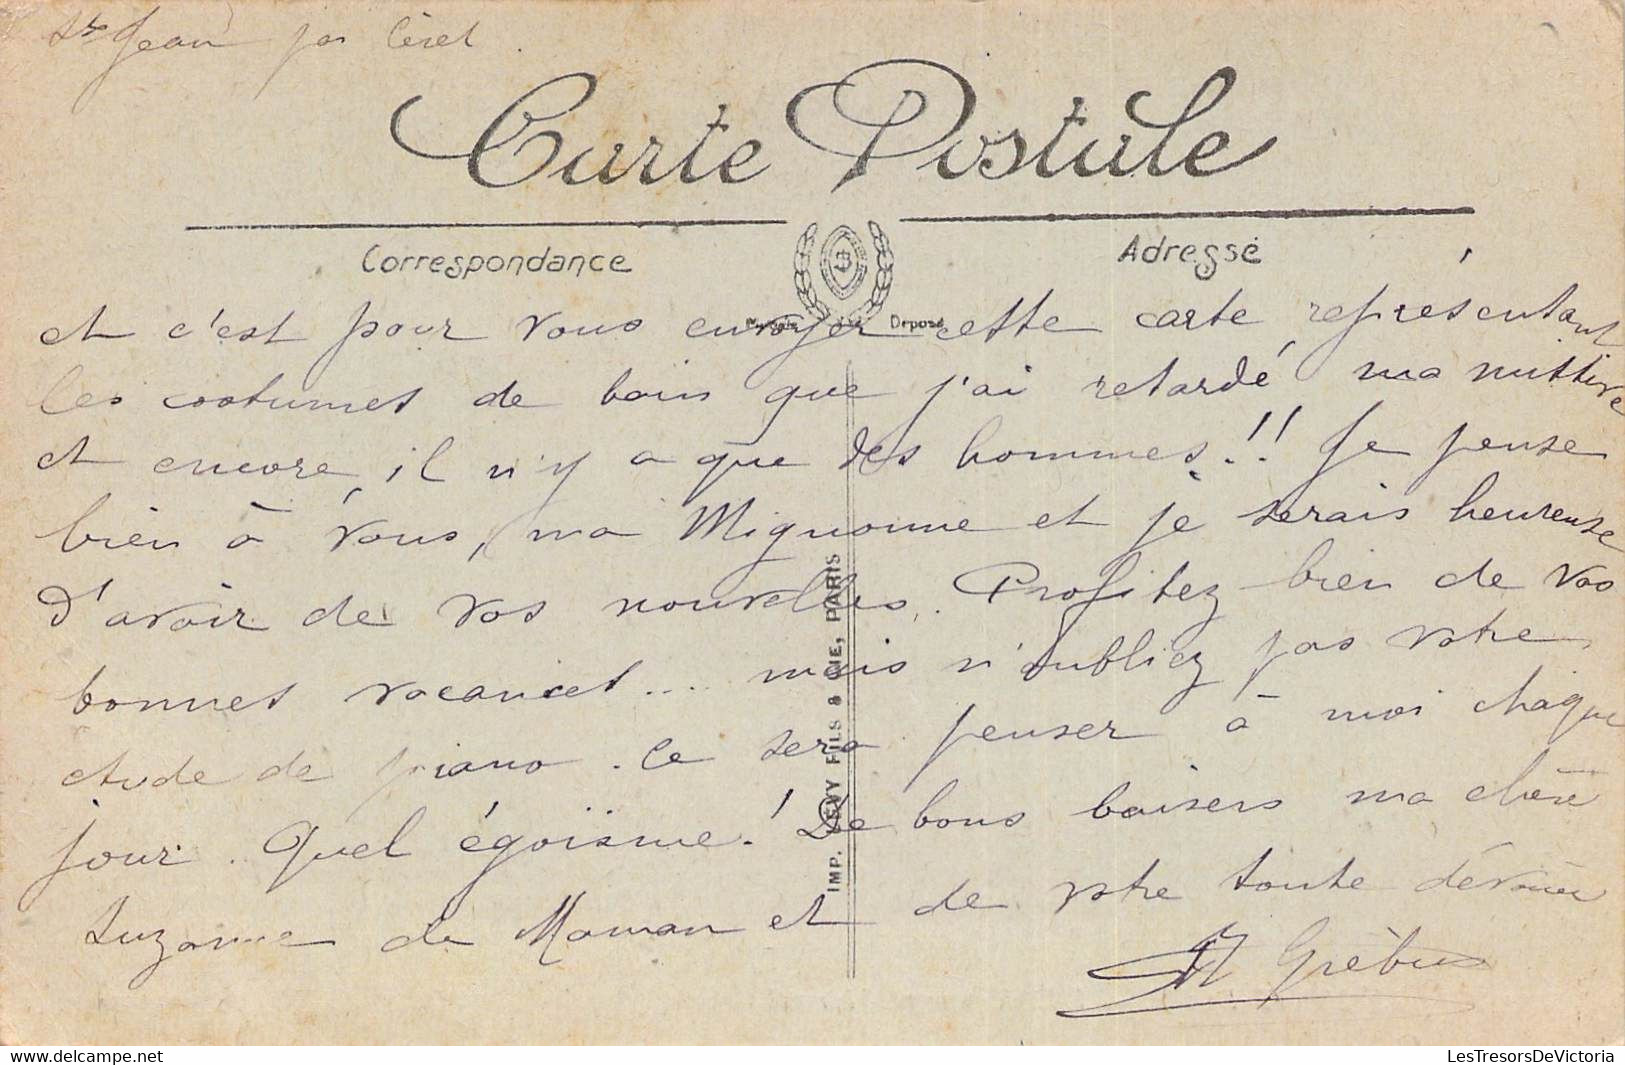 St Jean par Céret.
Carte Postale
Correspondance
Adresse
Déposé
et c'est pour vous envoyer cette carte représentant
les costumes de bain que j'ai retardé, ma missive
et encore, il n'y a que des hommes!! Je pense
bien à vous, ma Mignonne et je serais heureuse
d'avoir de vos nouvelles. Profitez bien de vos
bonnes vacances.... mais n'oubliez pas votre
étude de piano. Ce sera penser à moi chaque
jour. Quel égoïsme! De bons baisers ma chère
Suzanne de Maman et de votre toute dévouée
IMP. LEVY FILS & CIE, PARIS
LesTresorsDeVictoria
delcampe.net